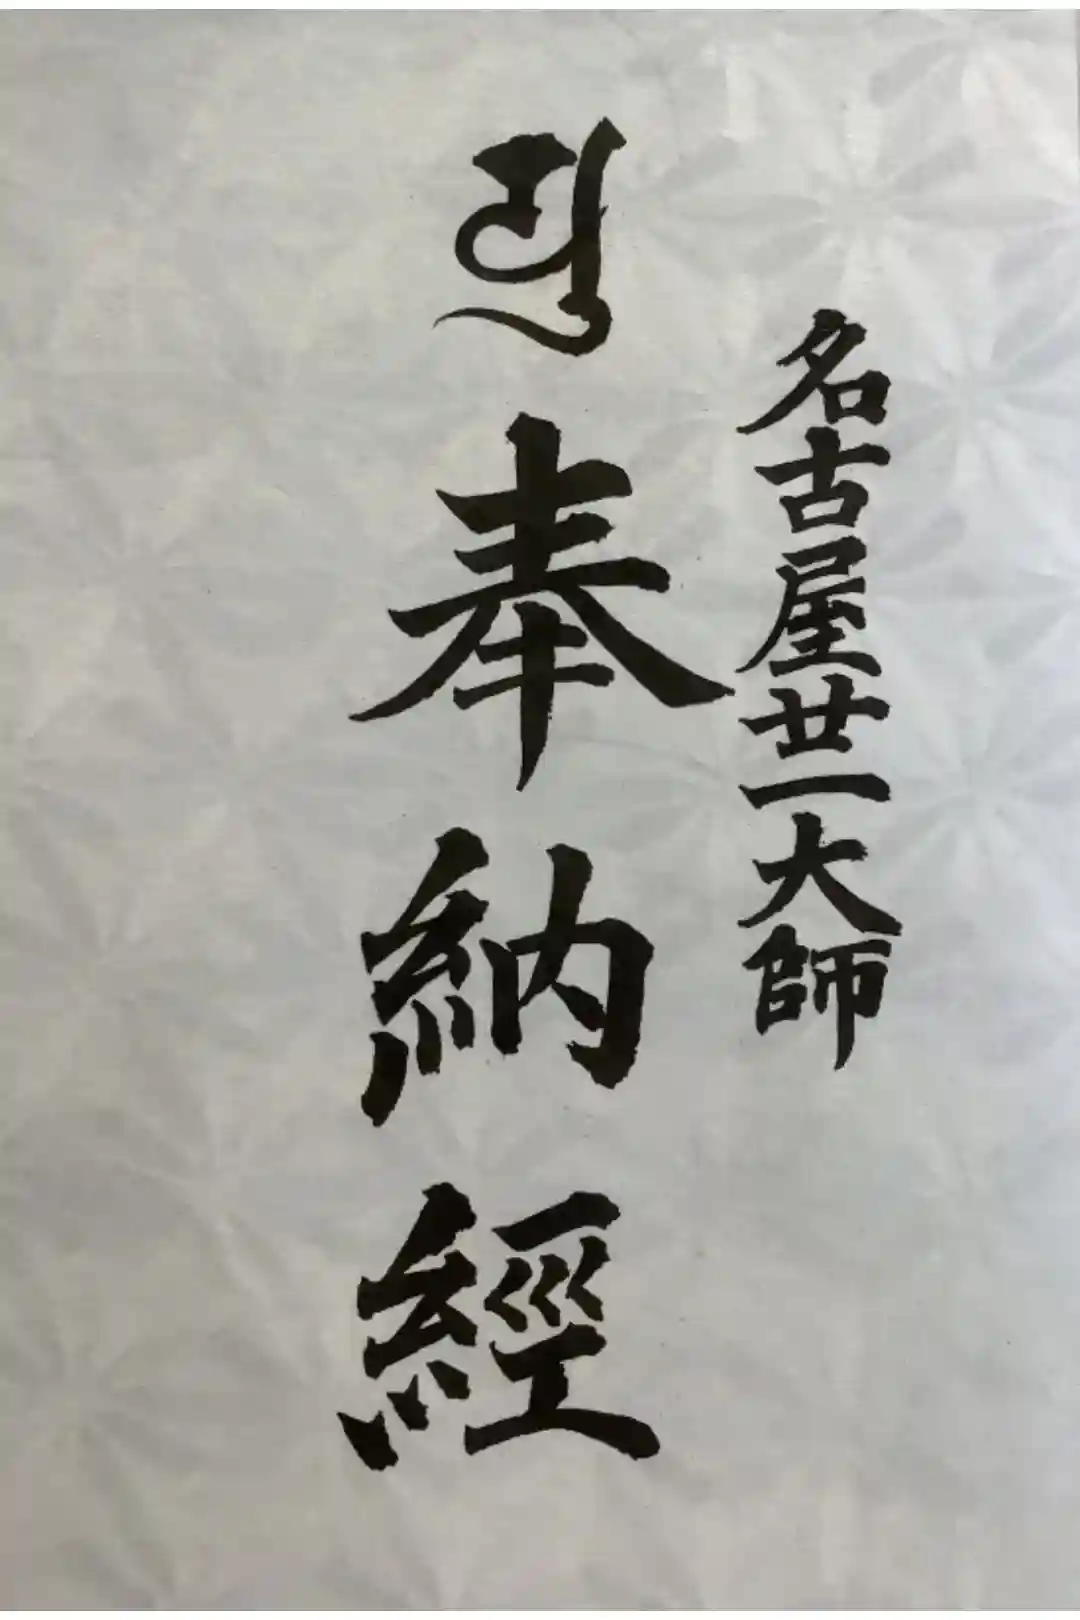 名古屋廿一大師
𑖧𑖲奉納經